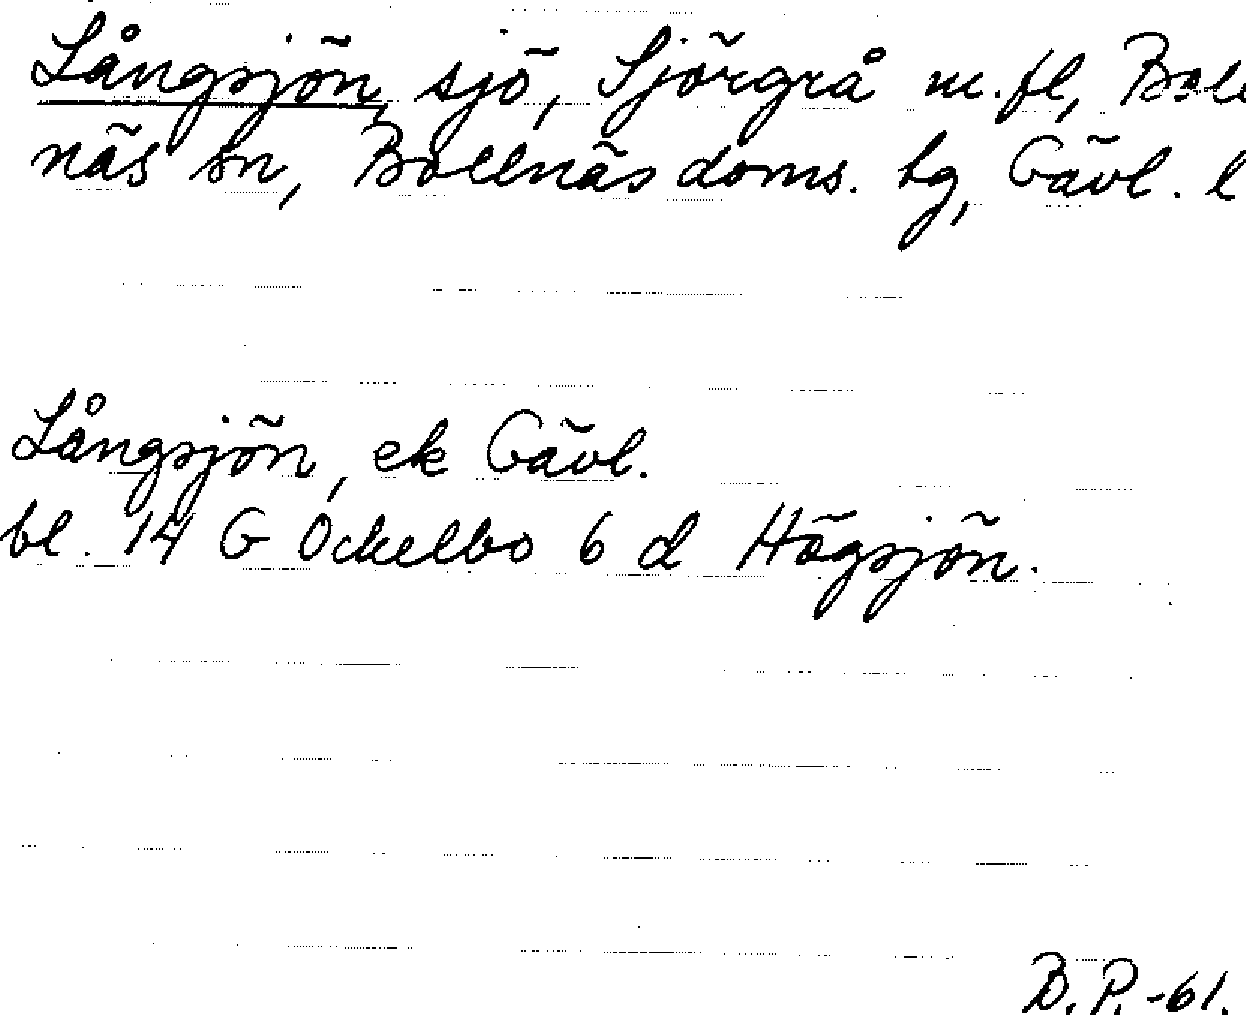 Långsjön, sjö, Sjörgrå m.fl, Boll
näs sn, Bollnäs doms. tg, Gävl. l
Långsjön, ek Gävl.
bl. 14 G Ockelbo 6 d Högsjön.
B.P.-61.